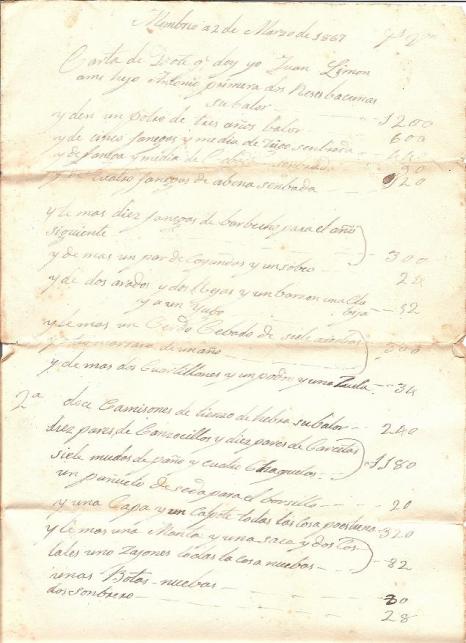 Membrio a 2 de Marzo de 1867
Carta de Dote q doy yo Juan Limon
a mi hijo Antonio primera dos Reses bacunas
su balor - 1200
y den un potro de tres años balor - 600
y de cinco fanegas y media de trigo senbrada
y de fanega y media de senbrada - 30
y de cuatro fanegas de abena senbrada - 120
y de mas diez fanegas de barbecho para el año
siguiente - 300
y de mas un par de Coyundas y un sobeo - 24
y de dos arados y dos Rejas y un barron una Cla
bija - 52
y a un Yubo
y de mas un Cerdo Cebado de siete arrobas
de un año
y de mas dos Cuartillones y un podon y una Zuela - 34
2ª doce Camisones de lienzo de hebra su balor - 240
diez pares de Canzocillos y diez pares de Carcetas
siete mudos de paño y cuatro Chaquetas - 1180
un panuelo de seda para el borsillo - 20
y una Capa y un Capote todas las cosa poco buena - 320
y de mas una Manta y una saca y dos Cos
tales uno Zajones todas la cosa nuebas - 82
unas Botas nuebas - 30
dos sonbrero - 28